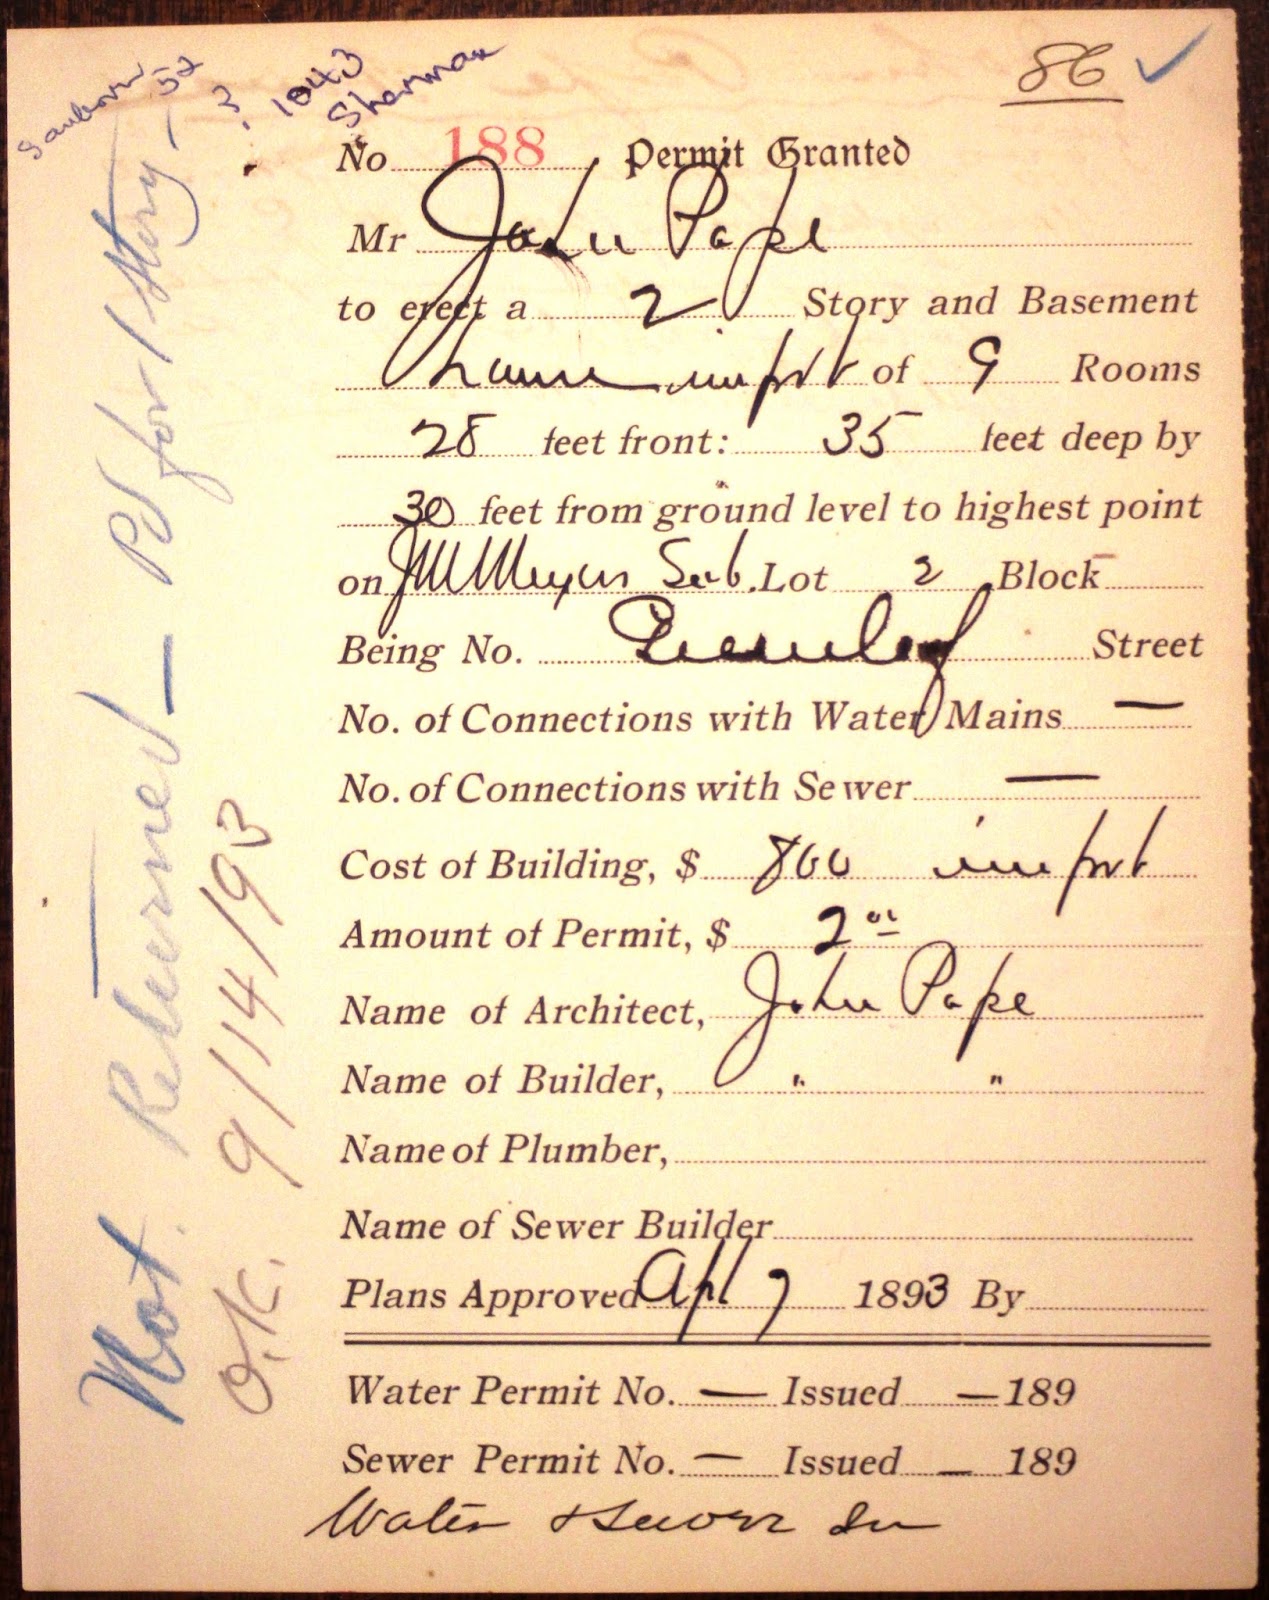 Sanborn 52
? 1043
Sherman
86 ✓
No 188 Permit Granted
Mr John Pape
to erect a 2 Story and Basement
frame imprt of 9 Rooms
28 feet front: 35 feet deep by
30 feet from ground level to highest point
on Meyers Sub. Lot 2 Block
Being No. Greenleaf Street
No. of Connections with Water Mains —
No. of Connections with Sewer —
Cost of Building, $ 800 imprt
Amount of Permit, $ 2 00
Name of Architect, John Pape
Name of Builder, " "
Name of Plumber,
Name of Sewer Builder
Plans Approved Apl 7 1893 By
Water Permit No. — Issued — 189
Sewer Permit No. — Issued — 189
Water & Sewer In
Not Returned — Pd for 1 Story
O.K. 9/14/93